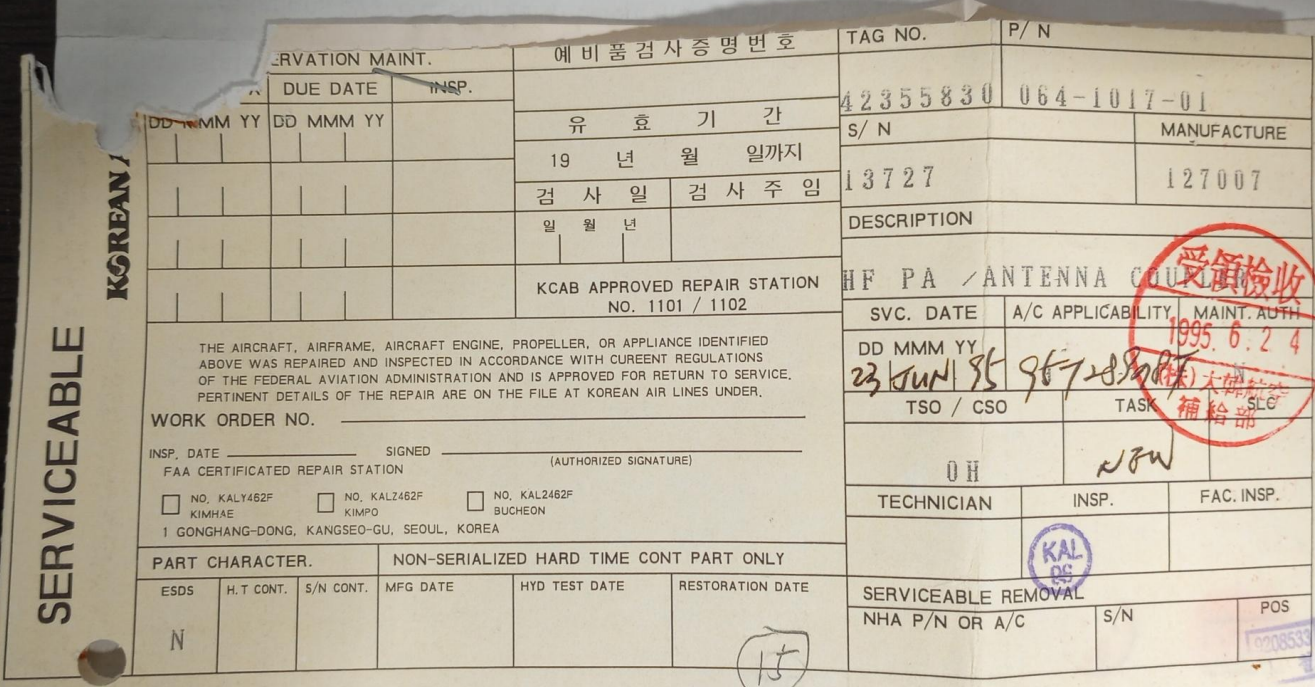 SERVICEABLE
KOREAN
ERVATION MAINT.
DUE DATE
INSP.
DD MMM YY
DD MMM YY
예비품검사증명번호
유 효 기 간
19 년 월 일까지
검 사 일
검 사 주 임
일 월 년
KCAB APPROVED REPAIR STATION
NO. 1101 / 1102
THE AIRCRAFT, AIRFRAME, AIRCRAFT ENGINE, PROPELLER, OR APPLIANCE IDENTIFIED
ABOVE WAS REPAIRED AND INSPECTED IN ACCORDANCE WITH CUREENT REGULATIONS
OF THE FEDERAL AVIATION ADMINISTRATION AND IS APPROVED FOR RETURN TO SERVICE.
PERTINENT DETAILS OF THE REPAIR ARE ON THE FILE AT KOREAN AIR LINES UNDER.
WORK ORDER NO.
INSP. DATE SIGNED
(AUTHORIZED SIGNATURE)
FAA CERTIFICATED REPAIR STATION
NO. KALY462F
KIMHAE
NO. KALZ462F
KIMPO
NO. KAL2462F
BUCHEON
1 GONGHANG-DONG, KANGSEO-GU, SEOUL, KOREA
PART CHARACTER.
NON-SERIALIZED HARD TIME CONT PART ONLY
ESDS
H.T CONT.
S/N CONT.
MFG DATE
HYD TEST DATE
RESTORATION DATE
N
15
TAG NO.
P/N
42355830
064-1017-01
S/N
MANUFACTURE
13727
127007
DESCRIPTION
HF PA /ANTENNA COUPLER
SVC. DATE
A/C APPLICABILITY
MAINT. AUTH
DD MMM YY
23 JUN 95
受領検收
1995. 6. 2 4
(株)大韓航空
補給部
TSO / CSO
TASK
SLC
OH
NEW
TECHNICIAN
INSP.
FAC. INSP.
KAL
SERVICEABLE REMOVAL
NHA P/N OR A/C
S/N
POS
9208533